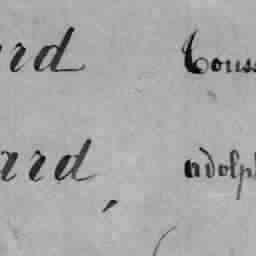 ard Touss
ard, adolph